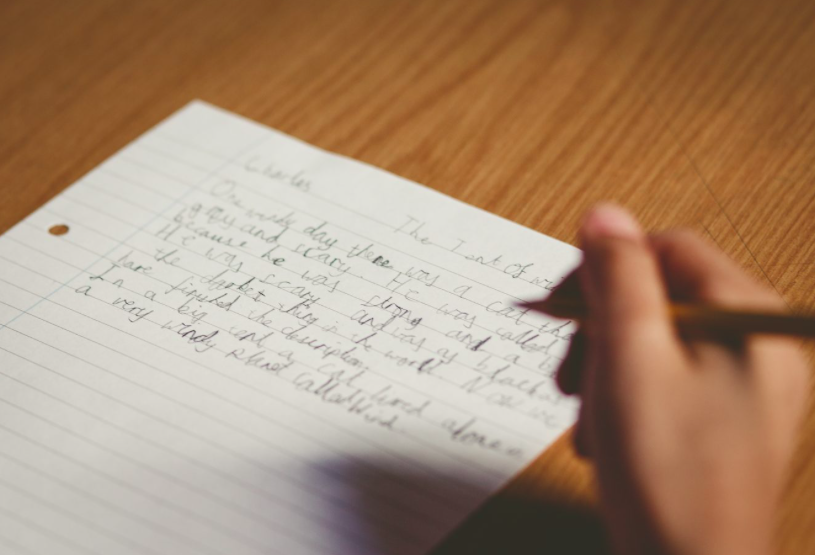 Charles
The Tent of
One windy day there was a cat
grey and scary. He was called
because he was strong and a
He was scary and was as black as
the darkest thing in the world. Now we
have finished the description.
In a big tent a cat lived alone
a very windy planet called Wind.